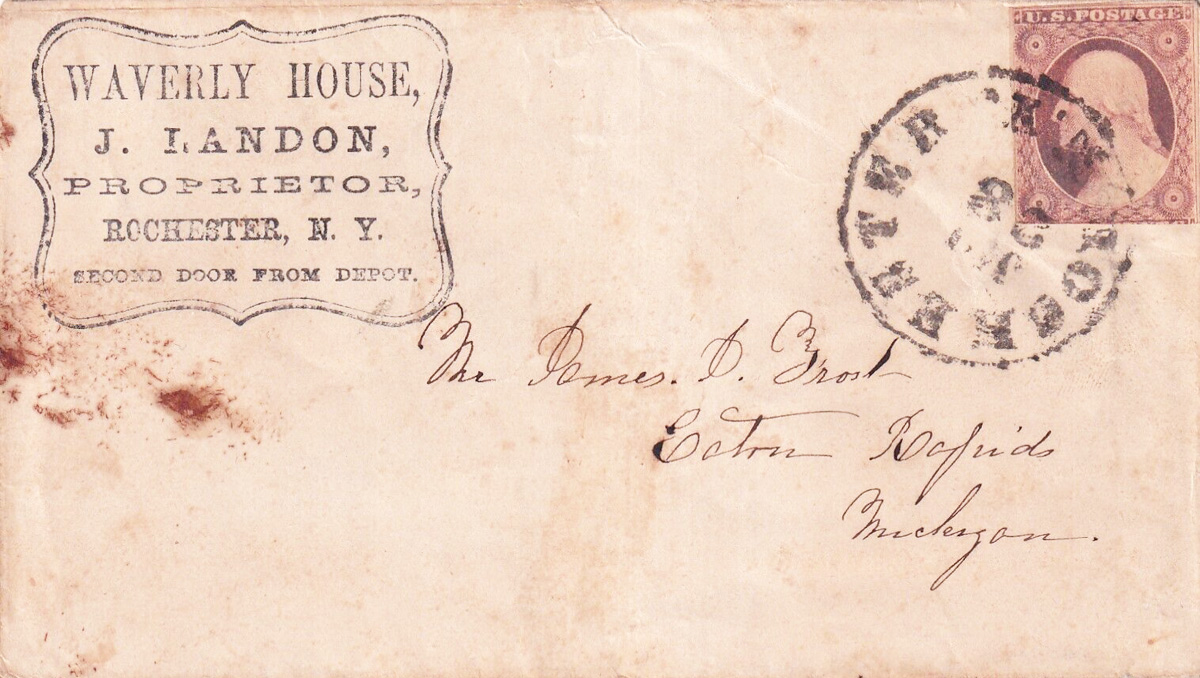 WAVERLY HOUSE,
J. LANDON,
PROPRIETOR,
ROCHESTER, N. Y.
SECOND DOOR FROM DEPOT.
U.S. POSTAGE
ROCHESTER N.Y.
Mr James. D. Frost
Eaton Rapids
Michigan.